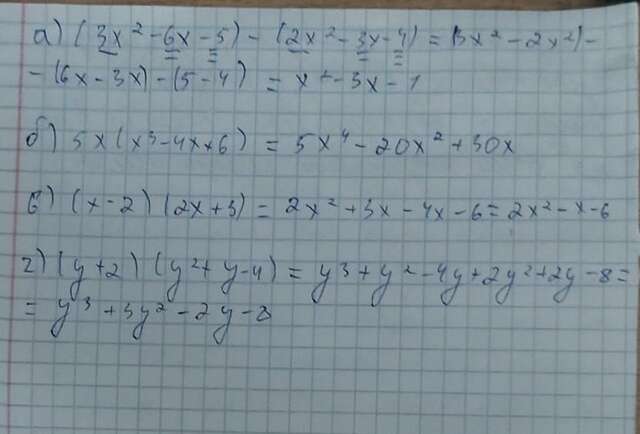 а) (3x² - 6x - 5) - (2x² - 3x - 4) = (3x² - 2x²) -
- (6x - 3x) - (5 - 4) = x² - 3x - 1
б) 5x (x³ - 4x + 6) = 5x⁴ - 20x² + 30x
в) (x - 2) (2x + 3) = 2x² + 3x - 4x - 6 = 2x² - x - 6
г) (y + 2) (y² + y - 4) = y³ + y² - 4y + 2y² + 2y - 8 =
= y³ + 3y² - 2y - 8